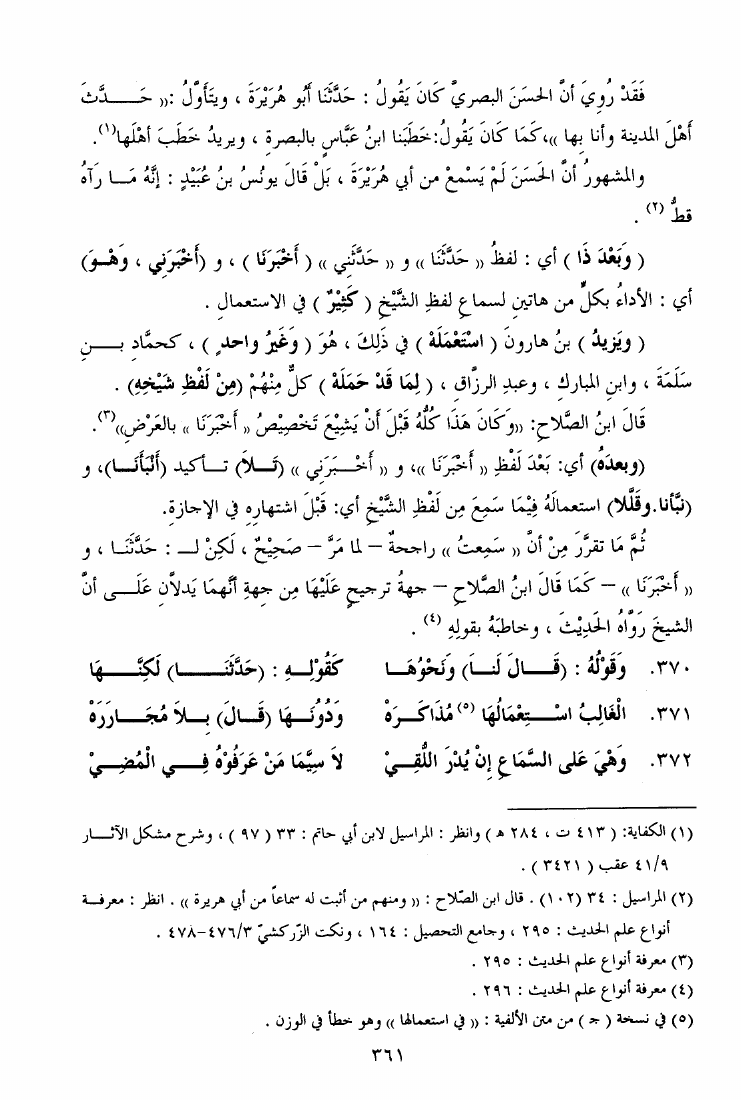 فَقَدْ رُوِيَ أنَّ الحَسَنَ البصريَّ كَانَ يَقُولُ : حَدَّثَنَا أَبُو هُرَيْرَةَ ، ويتَأَوَّلُ :(( حَـــدَّثَ
أَهْلَ المدينة وأنا بِها ))،كَمَا كَانَ يَقُولُ:خَطَبَنا ابنُ عَبَّاسٍ بالبصرةِ ، ويريدُ خَطَبَ أهْلَها(١).
والمشهورُ أنَّ الحَسَنَ لَمْ يَسْمعْ من أبي هُرَيْرَةَ ، بَلْ قَالَ يونُسُ بنُ عُبَيْدٍ : إنَّهُ مَــا رَآهُ
قطُّ (٢) .
( وَبَعْدَ ذَا ) أي : لفظُ (( حَدَّثَنَا )) و (( حَدَّثَنِي )) ( أَخْبَرَنَا ) ، و (أَخْبَرَنِي ، وَهْـوَ)
أي : الأداءُ بكلٍّ من هاتينِ لسماعِ لفظِ الشَّيْخِ ( كَثِيْرٌ ) في الاستعمالِ .
( وَيَزِيدُ ) بنُ هارونَ ( اسْتَعْمَلَهْ ) في ذَلِكَ ، هُوَ ( وَغَيرُ واحدٍ ) ، كحمَّادِ بـــنِ
سَلَمَةَ ، وابنِ المباركِ ، وعبدِ الرزَّاقِ ، ( لِمَا قَدْ حَمَلَهْ ) كلٌّ مِنْهُمْ (مِنْ لَفْظِ شَيْخِهِ) .
قَالَ ابنُ الصَّلاحِ: ((وكَانَ هَذَا كُلُّهُ قَبْلَ أنْ يَشِيْعَ تَخْصِيْصُ (( أَخْبَرَنَا )) بالعَرْضِ))(٣).
(وبعدَهُ) أي: بَعْدَ لَفْظِ (( أَخْبَرَنَا ))، و (( أَخْـــبَرَنِي )) (تَــلاَ) تــأكيد (أَنْبَأَنَــا)، و
(نبَّأنا.وقَلَّلا) استعمالَهُ فِيْمَا سَمِعَ مِن لَفْظِ الشَّيْخِ أي: قَبْلَ اشتهارِهِ في الإجازةِ.
ثُمَّ مَا تقرَّرَ مِنْ أنَّ (( سَمِعتُ )) راجحةٌ – لما مَرَّ – صَحِيْحٌ ، لَكِنْ لـ : حَدَّثَنَـا ، و
(( أَخْبَرَنَا )) – كَمَا قَالَ ابنُ الصَّلاحِ – جهةُ ترجيحٍ عَلَيْهَا مِن جهةِ أنَّهُمَا يَدلاَّنِ عَلَــى أنَّ
الشيخَ رَوَّاهُ الحَدِيْثَ ، وخاطَبَهُ بقولِهِ (٤) .
٣٧٠. وَقَوْلُهُ : (قَـــالَ لَنـَا) وَنَحْوُهَـا كَقَوْلِــهِ : (حَدَّثَنَـــا) لَكِنَّــهَا
٣٧١. الْغَالِبُ اسْــتِعْمَالُهَا (٥) مُذَاكَــرَهْ وَدُونَــهَا (قَـالَ) بِــلاَ مُجَــارَرَهْ
٣٧٢. وَهْيَ عَلى السَّمَاعِ إنْ يُدْرَ اللُّقِيْ لاَ سِيَّمَا مَنْ عَرَفُوْهُ فِـــي الْمُضِيْ
(١) الكفاية: ( ٤١٣ ت ، ٢٨٤ هـ ) وانظر : المراسيل لابن أبي حاتم : ٣٣ ( ٩٧ ) ، وشرح مشكل الآثـار
٤١/٩ عقب ( ٣٤٢١ ) .
(٢) المراسيل : ٣٤ (١٠٢) . قال ابن الصّلاح : (( ومنهم من أثبت له سماعاً من أبي هريرة )) . انظر : معرفــة
أنواع علم الحديث : ٢٩٥ ، وجامع التحصيل : ١٦٤ ، ونكت الزّركشيّ ٤٧٦/٣-٤٧٨ .
(٣) معرفة أنواع علم الحديث : ٢٩٥ .
(٤) معرفة أنواع علم الحديث : ٢٩٦ .
(٥) في نسخة ( جـ ) من متن الألفية : (( في استعمالها )) وهو خطأ في الوزن .
٣٦١